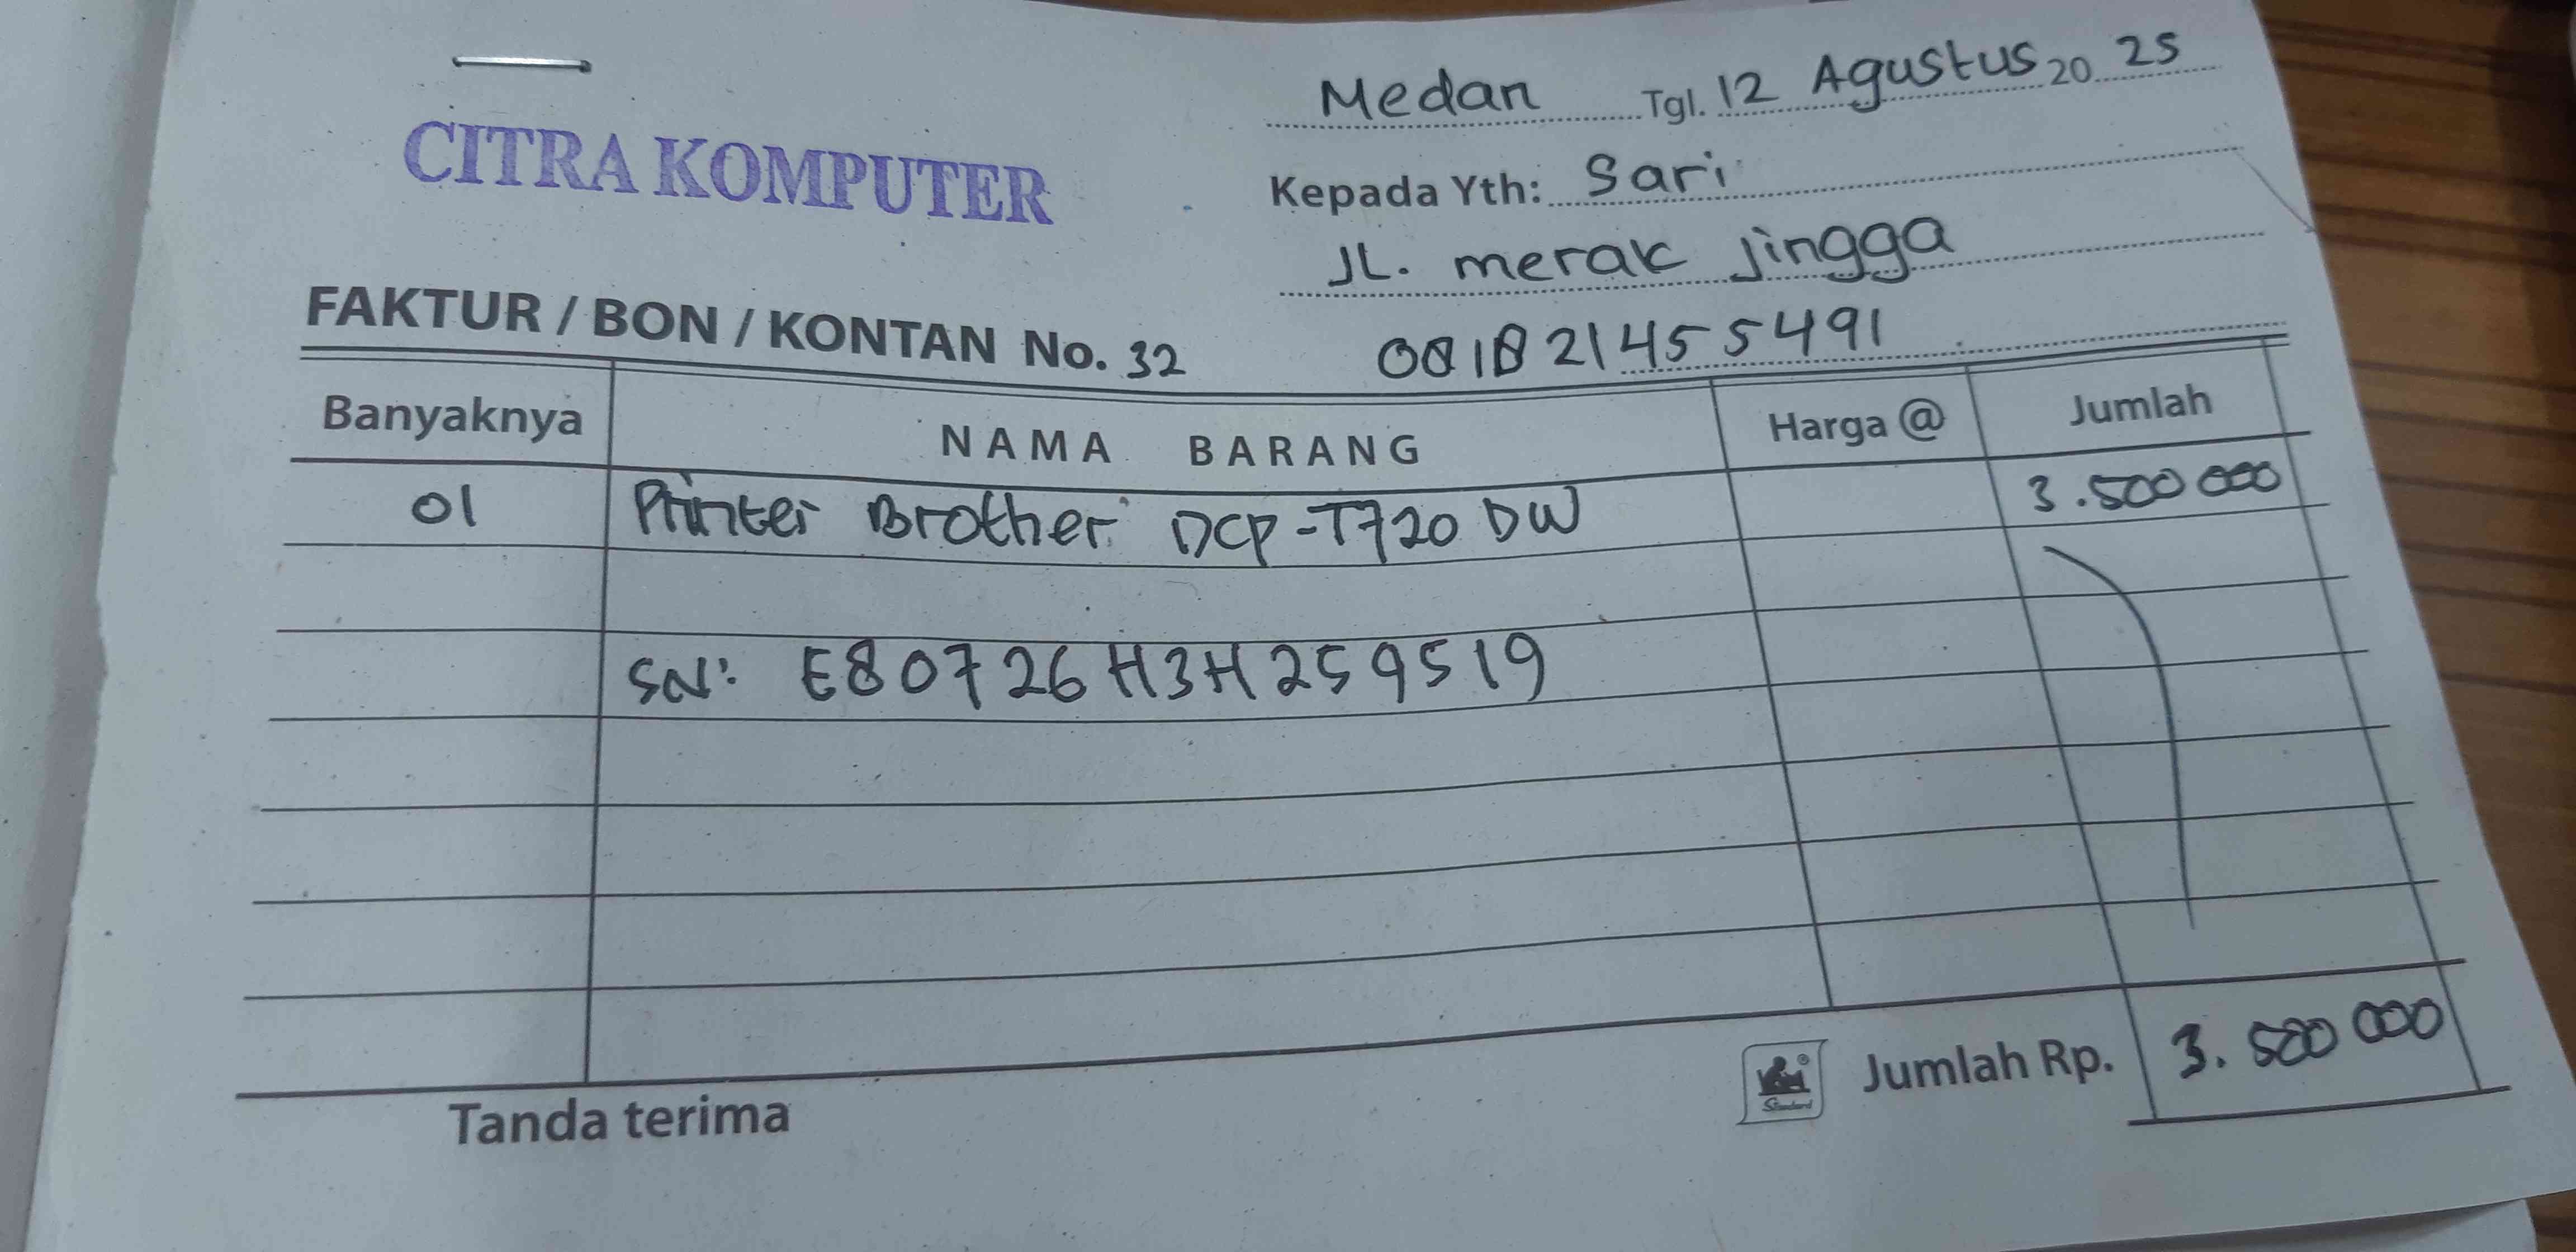 CITRA KOMPUTER
Medan Tgl. 12 Agustus 20 25
Kepada Yth: Sari
JL. merak Jingga
FAKTUR / BON / KONTAN No. 32
Banyaknya NAMA BARANG Harga @ Jumlah
01 Printer Brother DCP-T720 DW 3.500 000
SN: E80726H3H259519
Jumlah Rp. 3. 500 000
Standard
Tanda terima